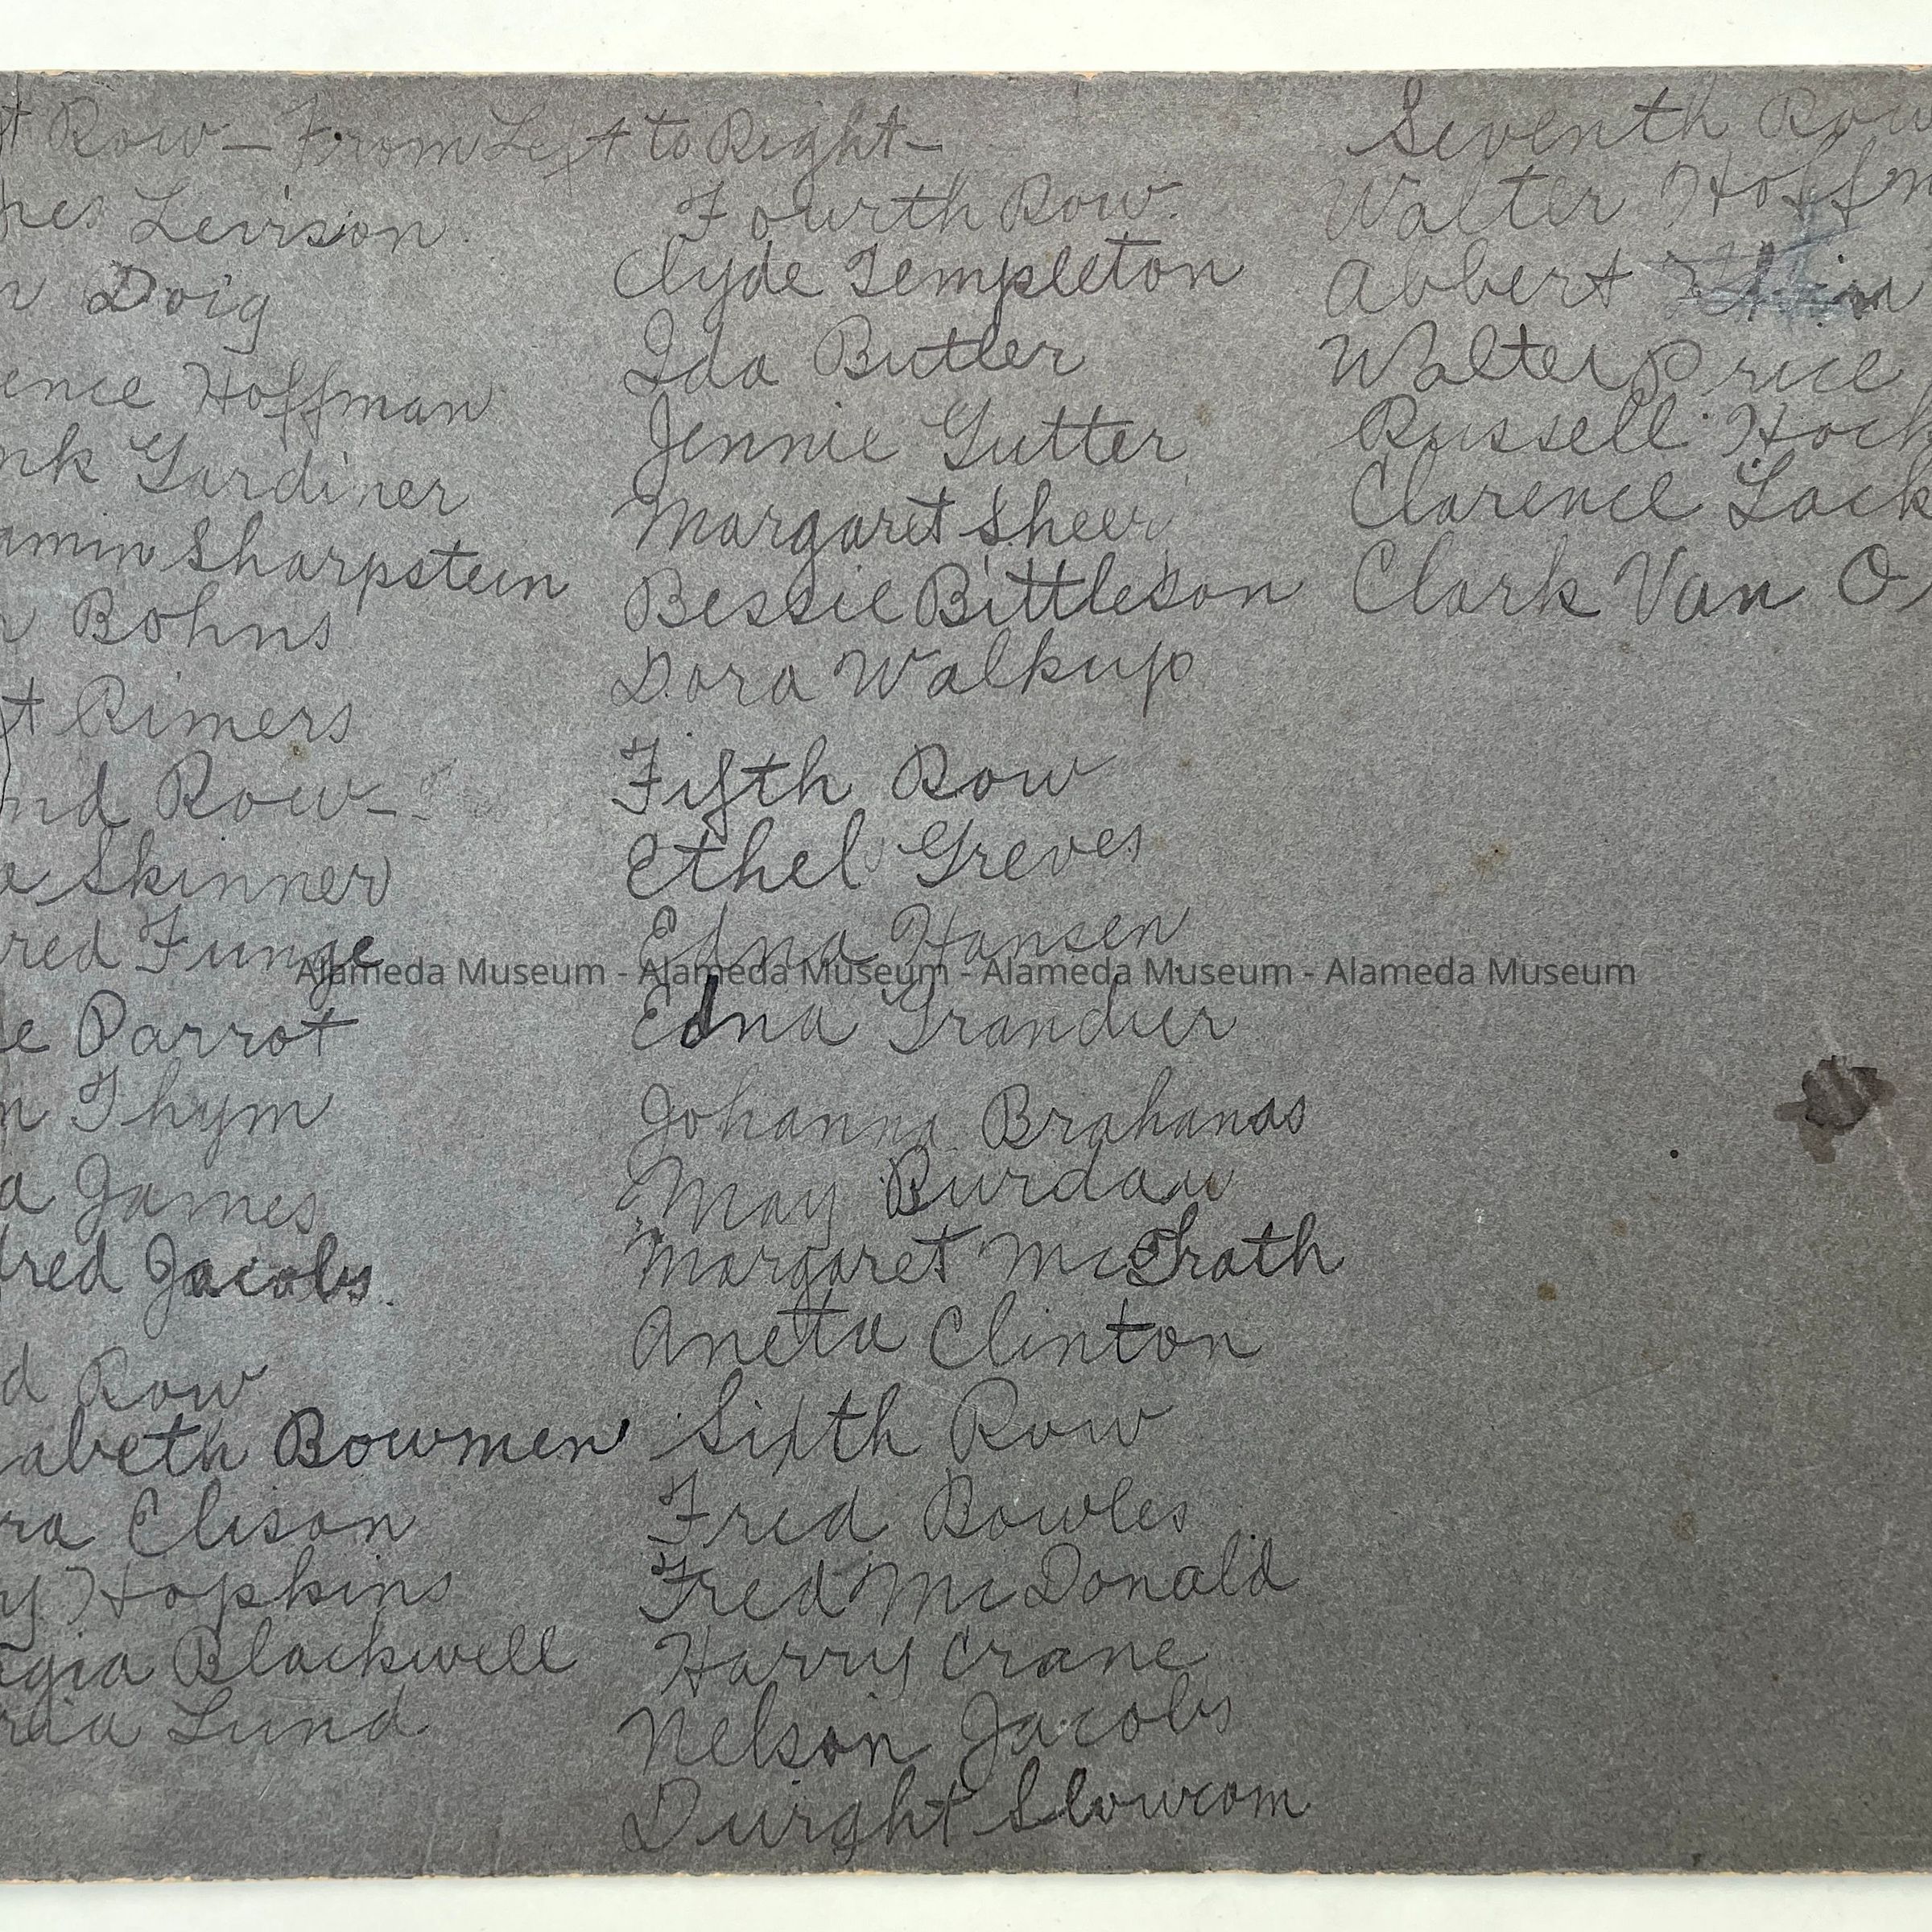 t Row - From Left to Right -
nes Levison
n Doig
ence Hoffman
nk Gardiner
amin Sharpstein
r Bohns
t Rimers
nd Row -
e Skinner
red Funge
e Parrot
n Thym
a James
dred Jacobs.
d Row
abeth Bowmen
ra Elison
y Hopkins
rgia Blackwell
Lund
Fourth Row.
Clyde Templeton
Ida Butler
Jennie Gutter
Margaret Sheer
Bessie Bittleson
Dora Walkup
Fifth Row
Ethel Greves
Edna Hansen
Edna Grandier
Johanna Brahanas
May Burdau
Margaret McGrath
Aneta Clinton
Sixth Row
Fred Bowles
Fred McDonald
Harry Crane
Nelson Jacobs
Dwight Slowcom
Seventh Row
Walter Hoffm
Abbert
Walter Price
Russell Hock
Clarence Lock
Clark Van O
Alameda Museum - Alameda Museum - Alameda Museum - Alameda Museum